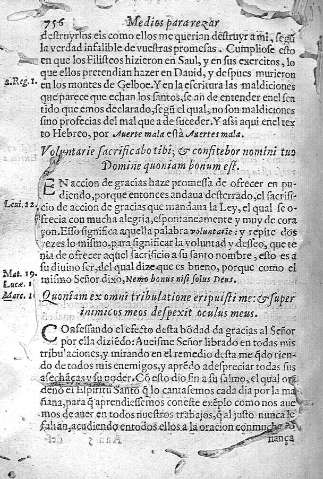 756 Medios para rezar
destruyrlos eis como ellos me querian destruyr a mi, segũ
la verdad infalible de vuestras promesas. Cumpliose esto
en que los Filisteos hizieron en Saul, y en sus exercitos, lo
que ellos pretendian hazer en Dauid, y despues murieron
2. Reg. 1.
en los montes de Gelboe. Y en la escritura las maldiciones
que parece que echan los santos, se an de entender en el sen
tido que emos declarado, segũ el qual, no son maldiciones
sino profecias del mal que a de suceder. Y assi aqui el tex
to Hebreo, por Auerte mala està Auertet mala.
Voluntarie sacrificabo tibi; & confitebor nomini tuo
Domine quoniam bonum est.
EN accion de gracias haze promessa de ofrecer en pu-
diendo, porque entonces andaua desterrado, el sacrifi-
Leui. 22.
cio de accion de gracias que mandaua la Ley, el qual se o-
frecia con mucha alegria, espontaneamente y muy de cora
çon. Esso significa aquella palabra voluntarie: y repite dos
vezes lo mismo, para significar la voluntad y desseo, que te
nia de ofrecer aquel sacrificio a su santo nombre, esto es a
su diuino ser, del qual dize que es bueno, porque como el
Mat. 19.
Lucæ. 1
mismo Señor dixo, Nemo bonus nisi solus Deus.
Marc. 1
Quoniam ex omni tribulatione eripuisti me: & super
inimicos meos despexit oculus meus.
COnfessando el efecto desta bõdad da gracias al Señor
por ella diziẽdo: Aueisme Señor librado en todas mis
tribulaciones, y mirando en el remedio desta me q̃do rien-
do de todos mis enemigos, y aprẽdo a despreciar todas sus
asechãças y su poder. Cõ esto dio fin a su salmo, el qual or
denò el Espiritu Santo q̃ lo cantassemos cada dia por la ma
ñana, para q̃ aprendiessemos con este exẽplo como nos aue
mos de auer en todos nuestros trabajos, q̃ al justo nunca le
faltan, acudiendo en todos ellos a la oracion con mucha